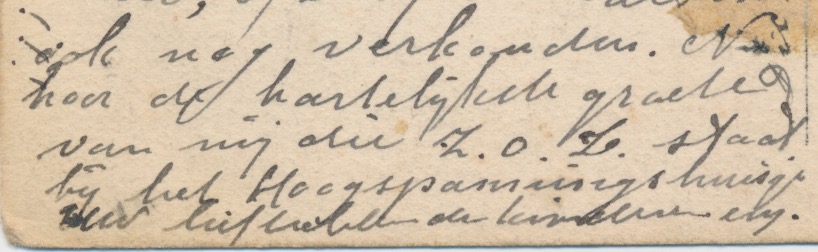 ook nog verkouden. Nu
hoor de hartelijkste groeten
van mij die Z.O.Z. staat
bij het Hoogspanningshuisje
Uw liefhebbende kinderen enz.